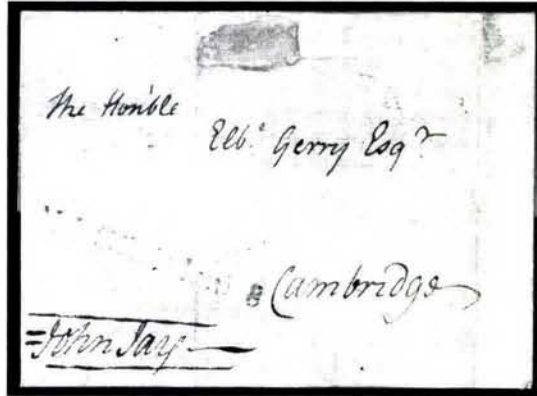 The Honble
Elbᵉ Gerry Esqʳ
Cambridge
=John Jay